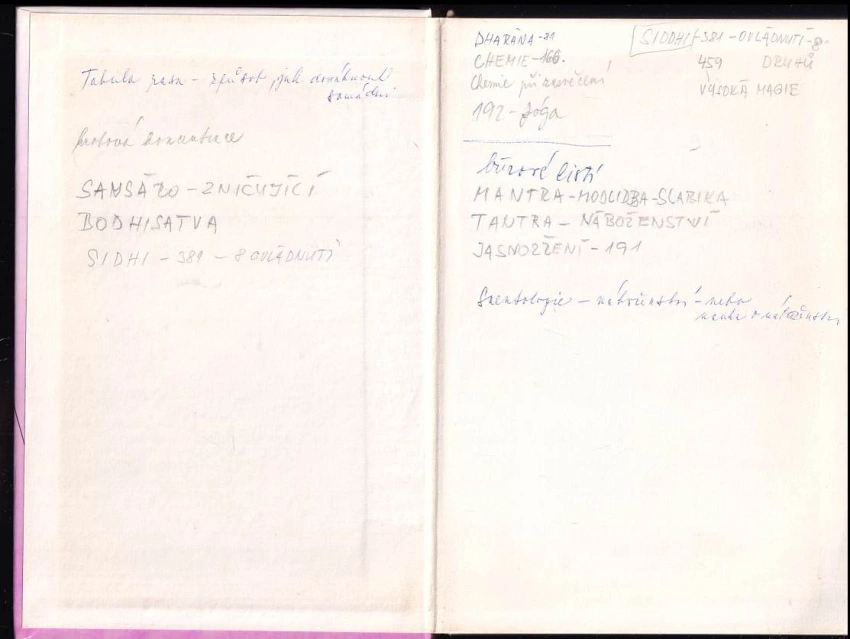 Tabula rasa – způsob jak dosáhnout
samádhi
koncentrace
SAMSÁRO-ZNIČUJÍCÍ
BODHISATVA
SIDHI – 381 – 8 OVLÁDNUTÍ
DHARÁNA-21
SIDDHI-381-OVLÁDNUTÍ-8.
CHEMIE-166.
459 DRUHŮ
Chemie při zasvěcení
VYSOKÁ MAGIE
192 – Jóga
listí
MANTRA-MODLIDBA-SLABIKA
TANTRA – NÁBOŽENSTVÍ
JASNOZŘENÍ – 191
– náboženství – nebo
nauka o náboženství